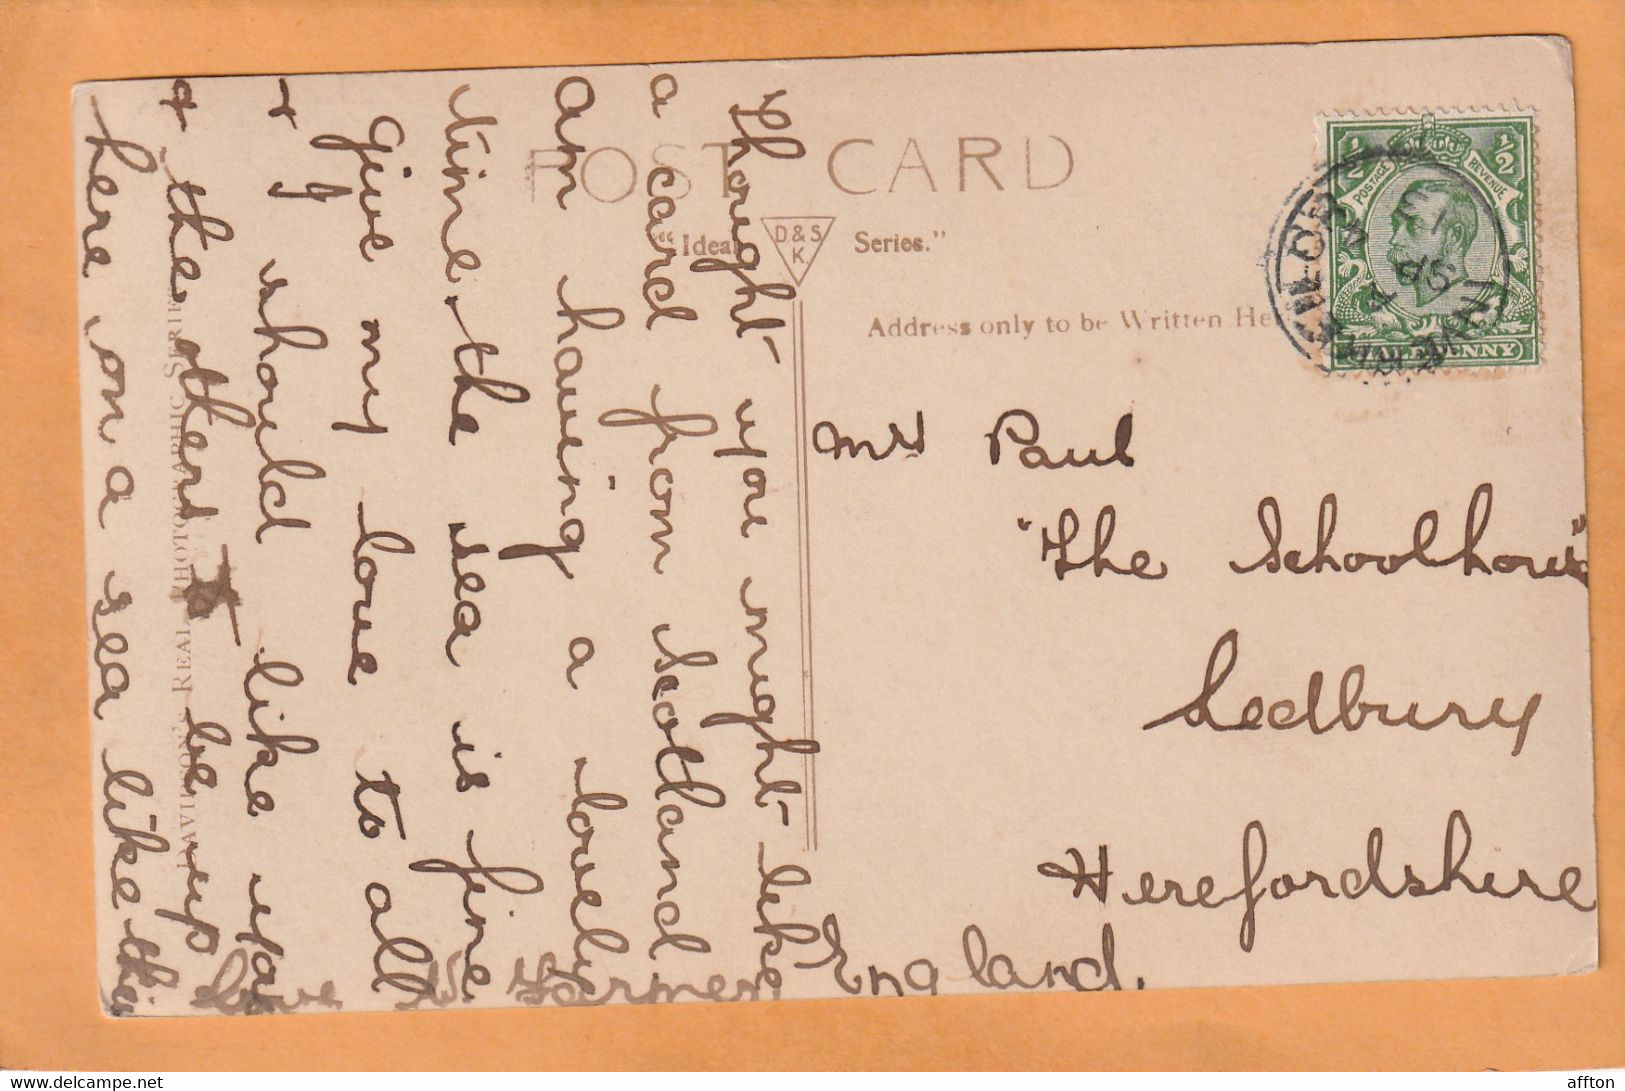 POST CARD
"Ideal D & S K Series."
Address only to be Written He
POSTAGE REVENUE
1/2 1/2
HALFPENNY
Thought you might like
a card from Scotland
Am having a lovely
time. the sea is fine
Give my love to all
& I should like you
& the others to be up
here on a sea like this
Love
Mrs Paul
"The Schoolhouse"
Ledbury
Herefordshire
England.
REAL PHOTOGRAPHIC SERIES
affton
delcampe.net